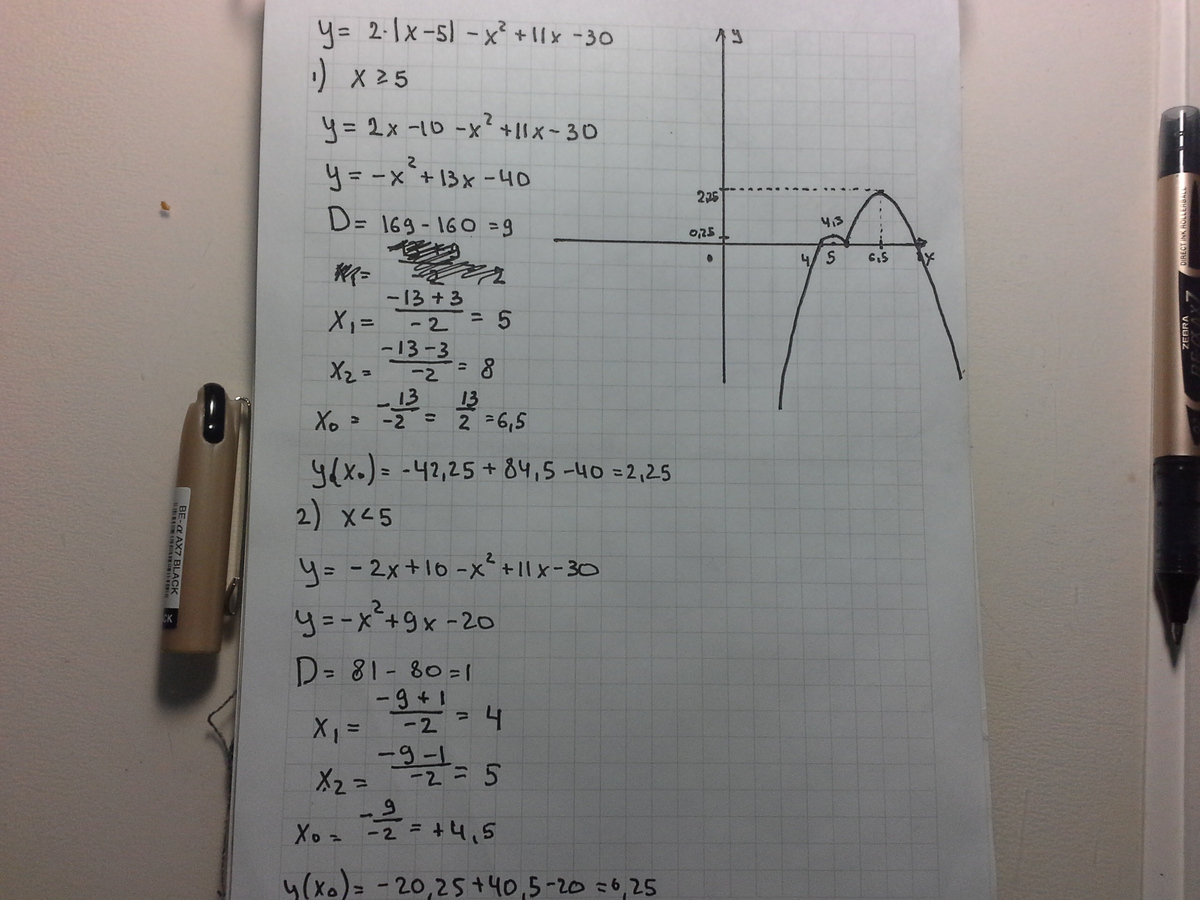 y = 2·|x-5| - x² + 11x - 30
1) x ≥ 5
y = 2x - 10 - x² + 11x - 30
y = -x² + 13x - 40
D = 169 - 160 = 9
x₁ = (-13 + 3)/(-2) = 5
x₂ = (-13 - 3)/(-2) = 8
x₀ = -13/-2 = 13/2 = 6,5
y(x₀) = -42,25 + 84,5 - 40 = 2,25
2) x < 5
y = -2x + 10 - x² + 11x - 30
y = -x² + 9x - 20
D = 81 - 80 = 1
x₁ = (-9 + 1)/(-2) = 4
x₂ = (-9 - 1)/(-2) = 5
x₀ = -9/-2 = +4,5
y(x₀) = -20,25 + 40,5 - 20 = 0,25
y
2,25
4,5
0,25
0
4
5
6,5
x
BE-α AX7 BLACK
CK
DIRECT INK ROLLERBALL
ZEBRA